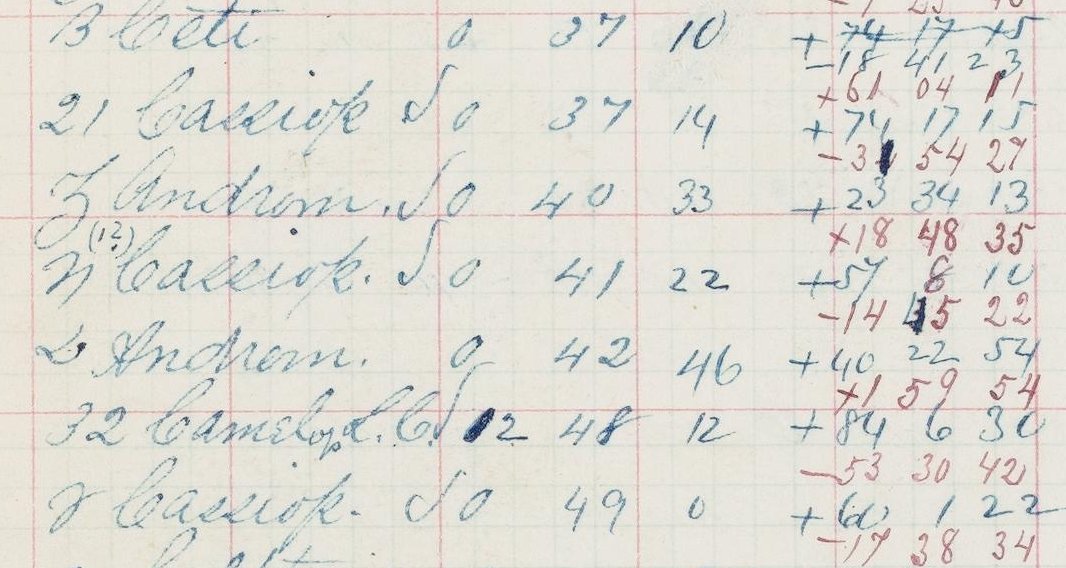 β Ceti 0 37 10 + 74 17 15
−18 41 23
+61 04 11
21 Cassiop S 0 37 14 + 74 17 15
−31 54 27
ζ Androm. S 0 40 33 + 23 34 13
+18 48 35
η (12) Cassiop. S 0 41 22 +57 8 10
−14 45 22
Androm. 0 42 46 +40 22 54
+1 59 54
32 Camelop L.C. S 12 48 12 + 84 6 30
−53 30 42
γ Cassiop. S 0 49 0 + 60 1 22
−17 38 34